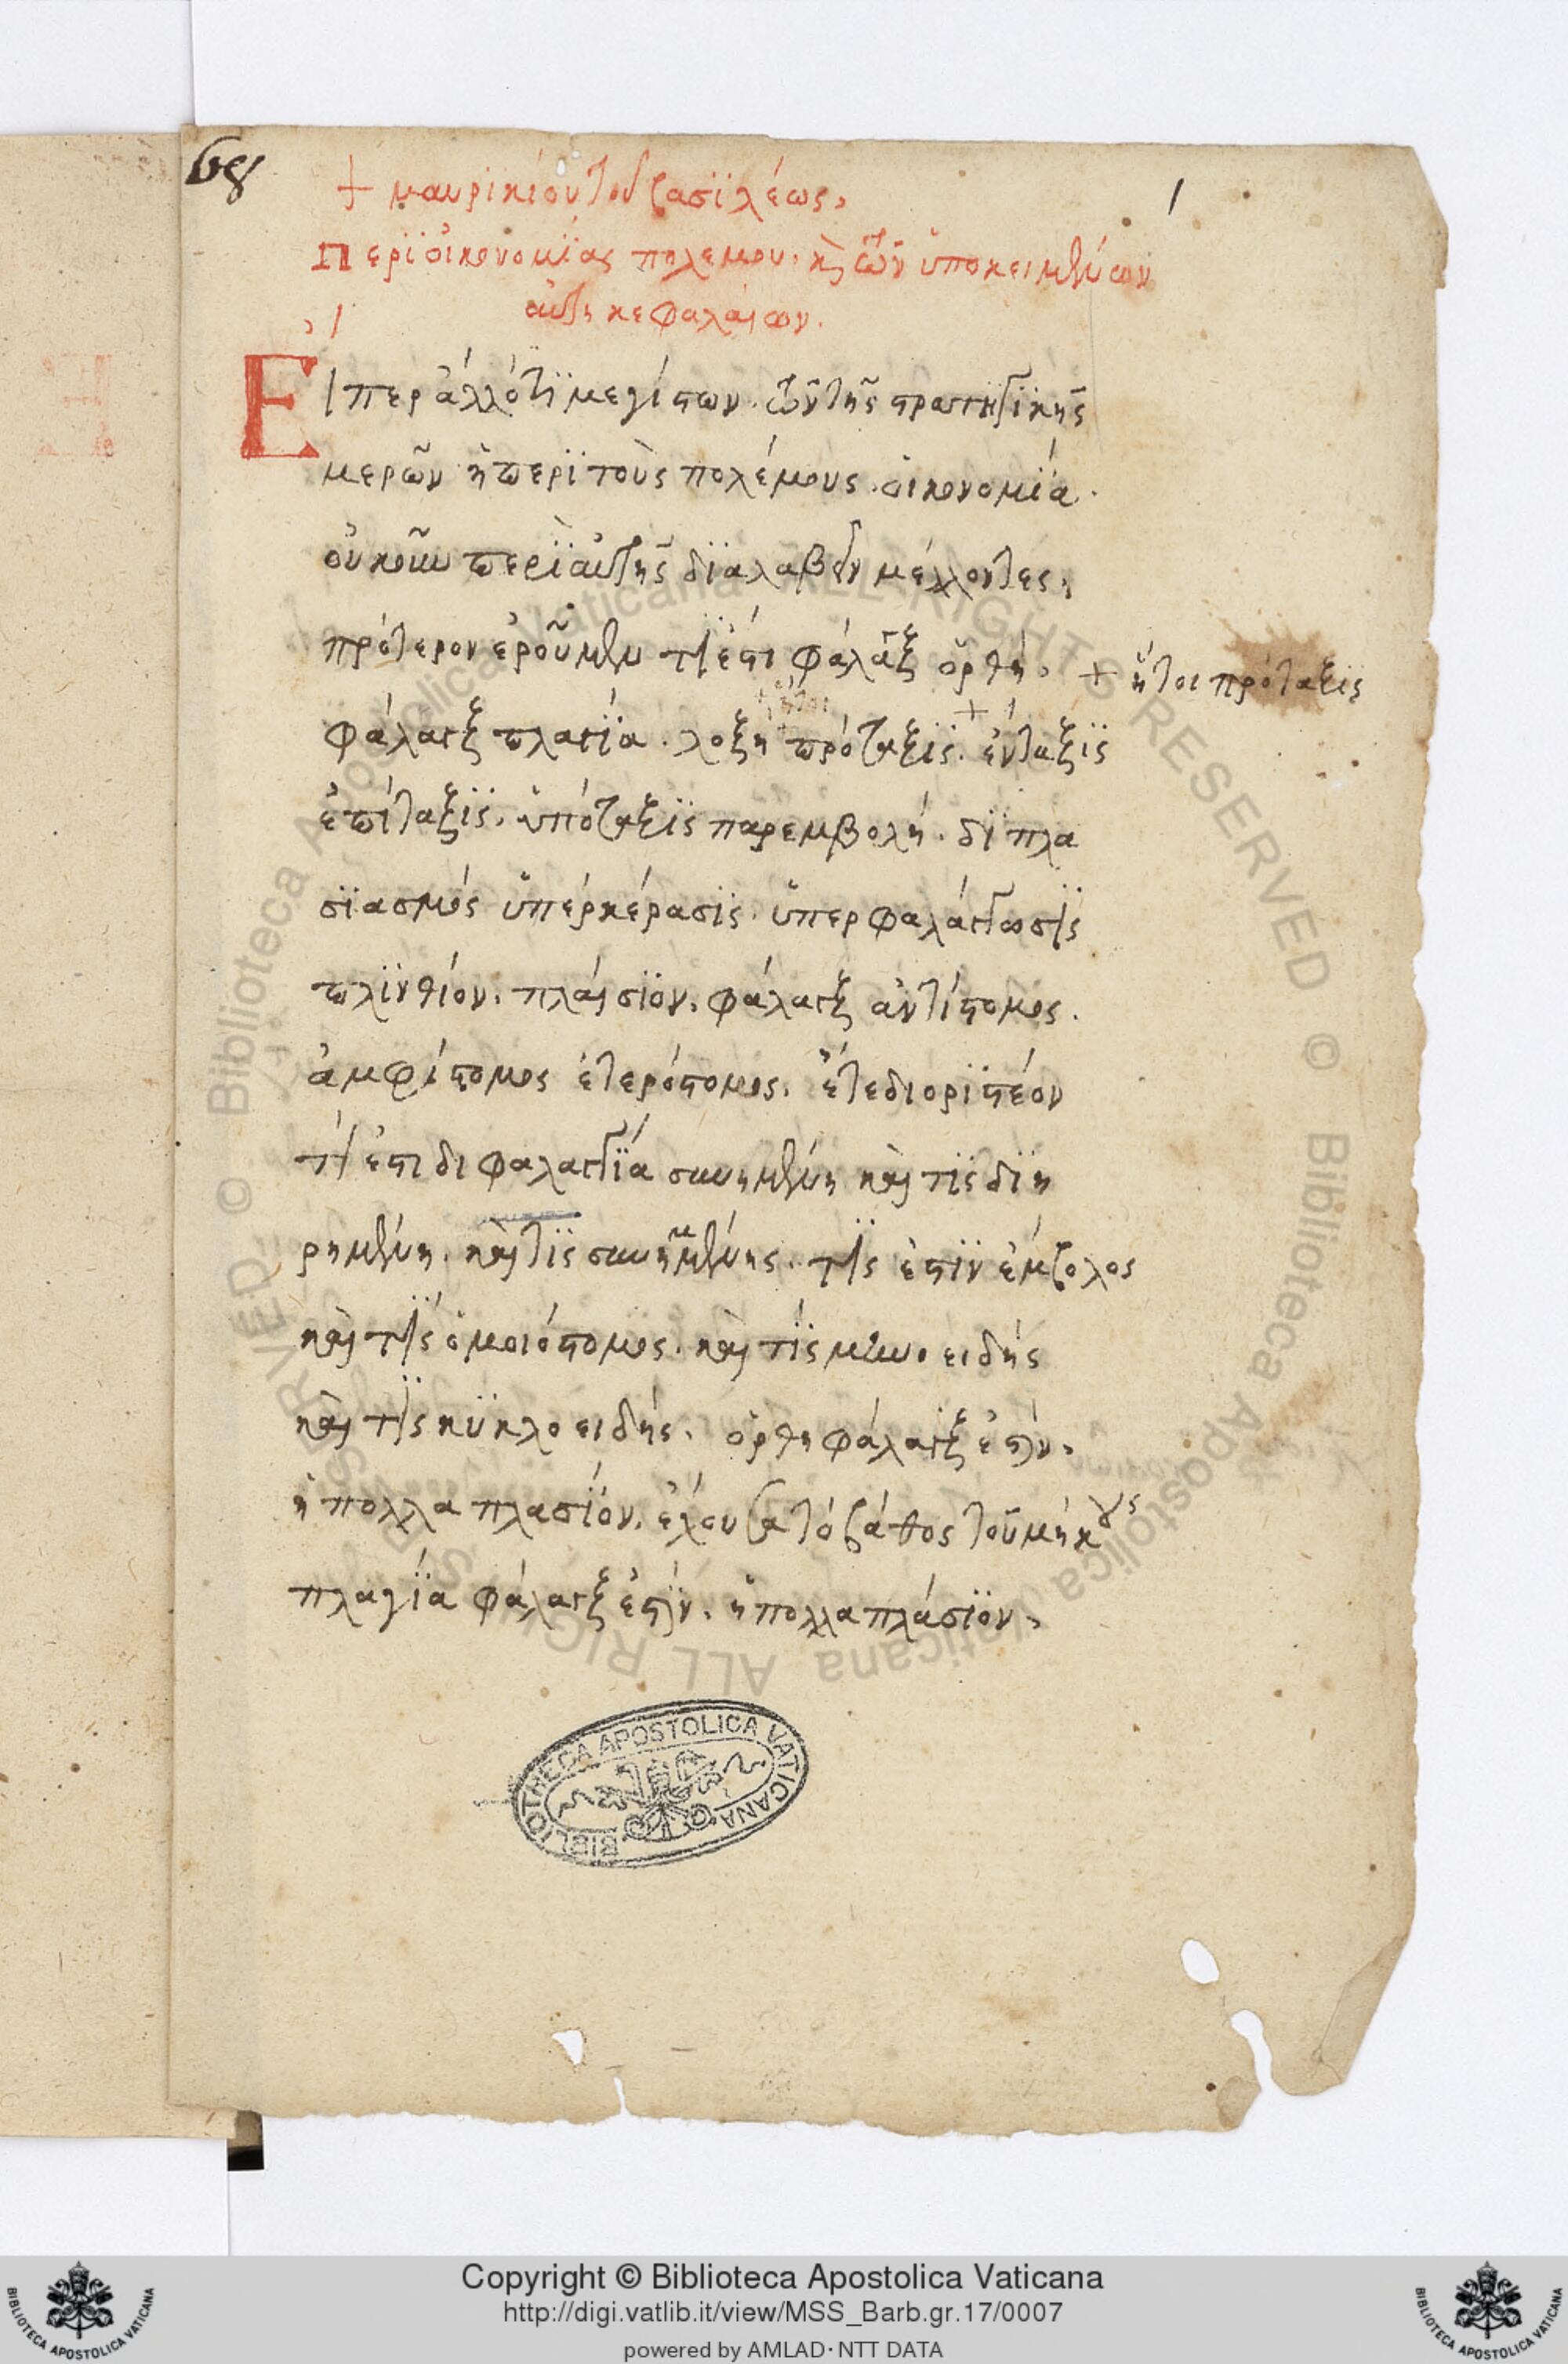 68
1
+ μαυρικίου τοῦ βασϊλέως,
Περϊ οἰκονομΐας πολεμου. κ τῶν ὑποκειμένων
αὐτῆ κεφαλαίων.
Εἴπερ ἄλλό τϊ μεγίστων. τῶν τῆς στρατηγϊκῆς
μερῶν ἡ περϊ τοὺς πολέμους οἰκονομΐα.
οὐκοῦν περϊ αὐτῆς δϊαλαβεῖν μέλλοντες,
πρότερον ἐροῦμεν τί ἐστι φάλαγξ ὀρθή. + ἤτοι πρόταξις
φάλαγξ πλαγΐα. λοξή πρόταξϊς. + ἔνταξϊς
ἐπίταξϊς. ὑπόταξϊς παρεμβολή. δϊπλα
σϊασμός ὑπέρκέρασϊς. ὑπερφαλάγγωσϊς
πλϊνθίον. πλαίσϊον. φάλαγξ ἀντίστομος.
ἀμφίστομος ἑτερόστομος. ἔτε διορϊστέον
τί ἐστι διφαλαγγΐα συνημένη καὶ τϊς δϊη
ρημένη. καὶ τϊς συνημμένης. τϊς ἐστϊν ἔμβολος
καὶ τΐς ὁμοιόστομος. καὶ τΐς μηνοειδής
καὶ τϊς κϋκλοειδής. ὀρθη φάλαγξ ἐστϊν.
ἡ πολλαπλασΐον, ἔχουσα τό βάθος τοῦ μήκους
πλαγΐα φάλαγξ ἐστϊν. ἡ πολλαπλάσϊον,
BIBLIOTHECA APOSTOLICA VATICANA
Copyright © Biblioteca Apostolica Vaticana
http://digi.vatlib.it/view/MSS_Barb.gr.17/0007
powered by AMLAD·NTT DATA